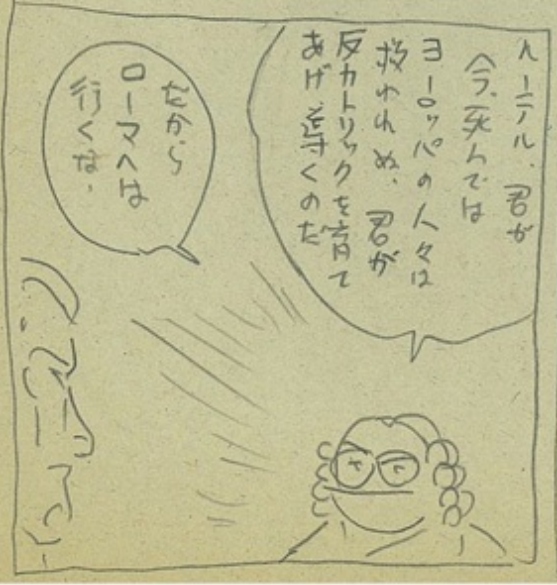 ルーテル、君が
今、死んでは
ヨーロッパの人々は
救われぬ、君が
反カトリックを育て
あげ導くのだ
だから
ローマへは
行くな、